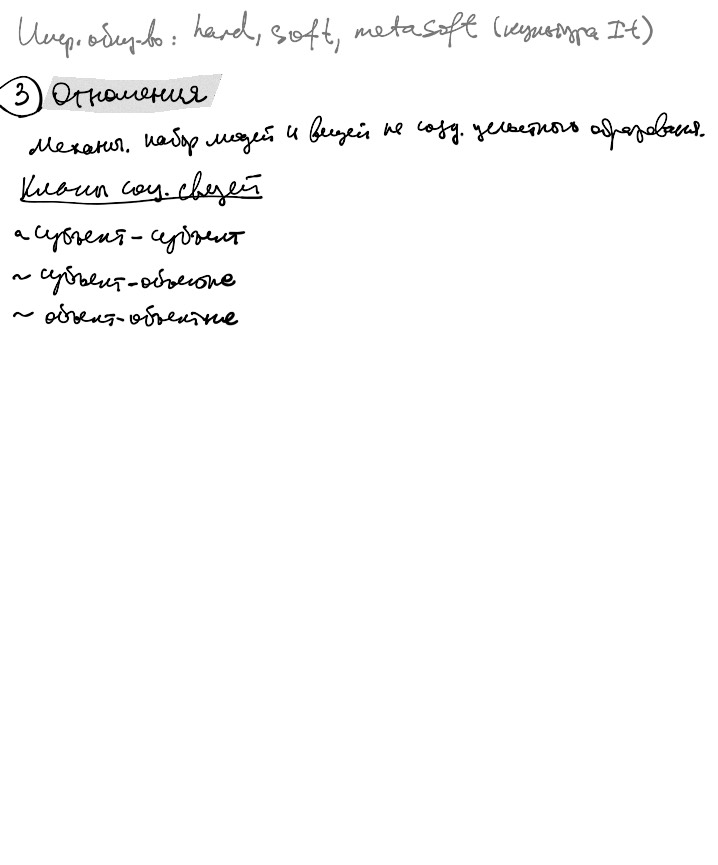 Инф. общ-во: hard, soft, metasoft (культура It)
③ Отношения
Механич. набор людей и вещей не созд. целостного образования.
Классы соц. связей
~ субъект-субъект
~ субъект-объектные
~ объект-объектные